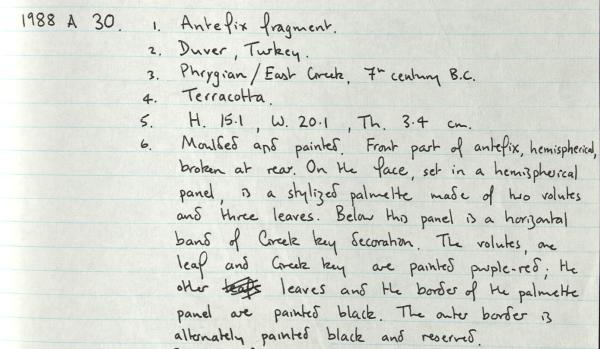 1988 A 30. 1. Antefix fragment.
2. Duver, Turkey.
3. Phrygian/East Greek, 7th century B.C.
4. Terracotta.
5. H. 15.1, W. 20.1, Th. 3.4 cm.
6. Moulded and painted. Front part of antefix, hemispherical,
broken at rear. On the face, set in a hemispherical
panel, is a stylized palmette made of two volutes
and three leaves. Below this panel is a horizontal
band of Greek key decoration. The volutes, one
leaf and Greek key are painted purple-red; the
other leaves and the border of the palmette
panel are painted black. The outer border is
alternately painted black and reserved.